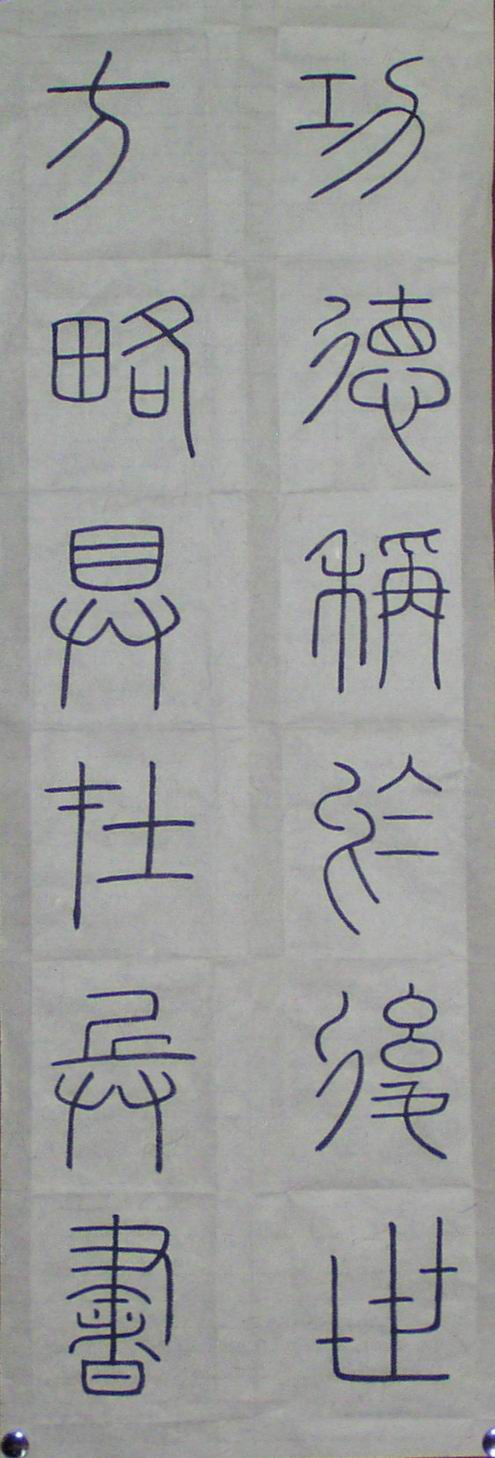 功德稱於後世
方略具在兵書